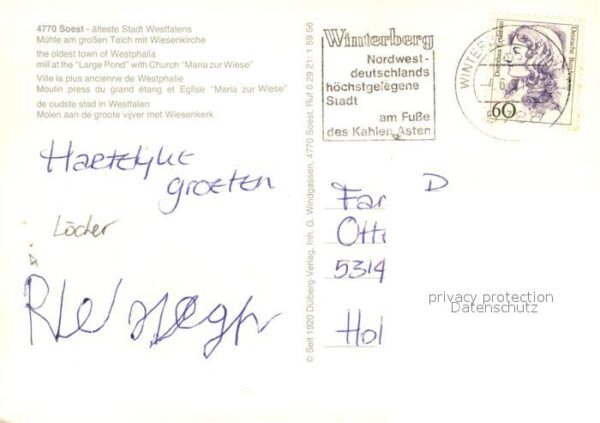 4770 Soest - älteste Stadt Westfalens
Mühle am großen Teich mit Wiesenkirche
the oldest town of Westphalia
mill at the "Large Pond" with Church "Maria zur Wiese"
Ville la plus ancienne de Westphalie
Moulin press du grand étang et Eglise "Maria zur Wiese"
de oudste stad in Westfalen
Molen aan de groote vijver met Wiesenkerk
Hartelijke
groeten
Löcher
© Seit 1920 Dülberg-Verlag, Inh. G. Windgassen, 4770 Soest, Ruf 0 29 21/1 59 56
Winterberg
Nordwest-
deutschlands
höchstgelegene
Stadt
am Fuße
des Kahlen Asten
60
Fam
Otti
5314
Hol
privacy protection
Datenschutz